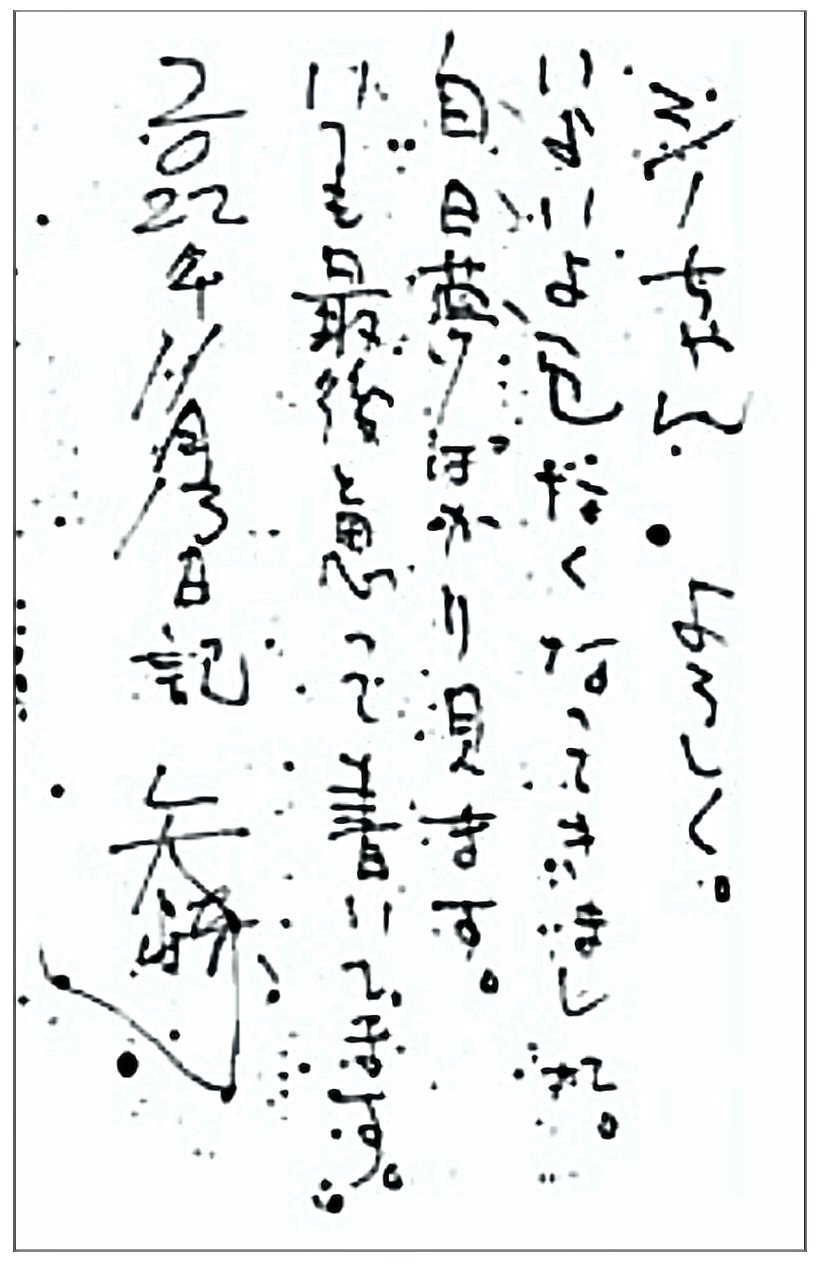 ミーちゃん・よろしく。
いよいよ危なくなってきました。
白日夢ばかり見ます。
いつも最後と思って書いてます。
2022年11月3日記 矢崎